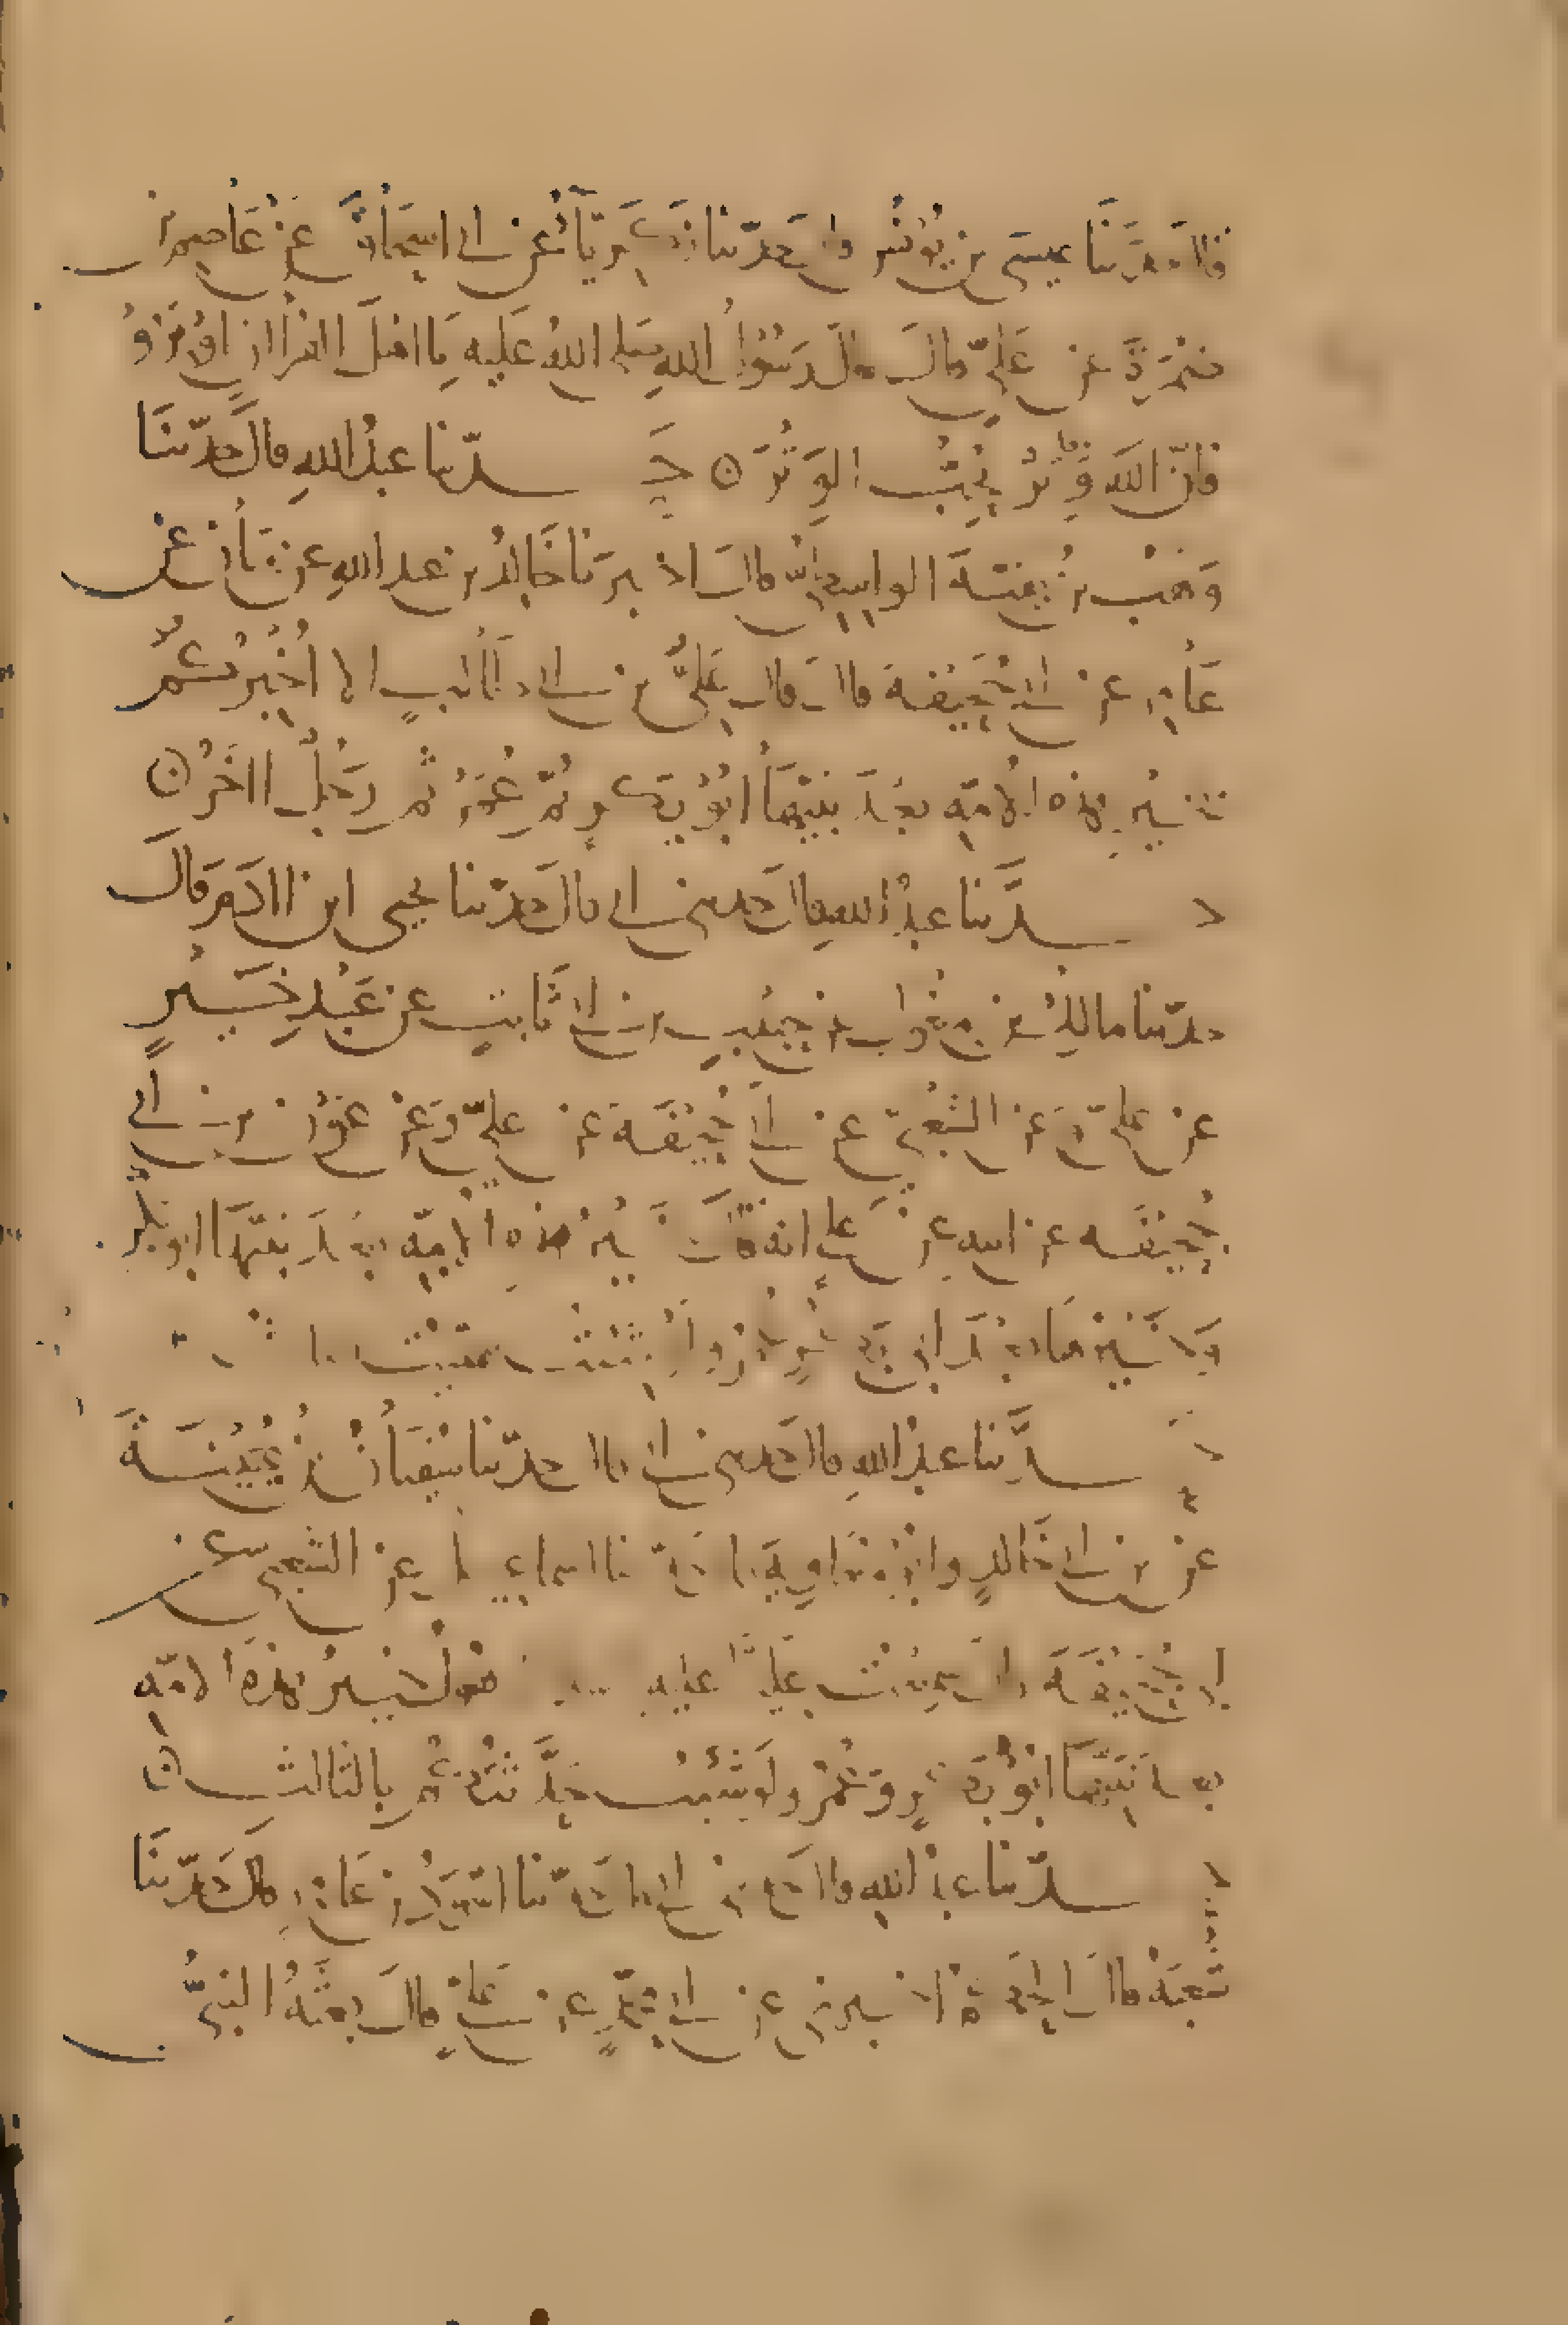 قال حدَّثنا عيسى بن يونس قال حدّثنا زكريّا عن ابي اسحاق عن عاصم بن
ضمرة عن عليّ قال قال رسول الله صلى الله عليه يا اهل القرآن اوتروا
فانّ الله وتر يحبّ الوتر ن حدّثنا عبد الله قال حدّثنا
وهب بن بقية الواسطيّ قال اخبرنا خالد بن عبد الله عن بيان عن
عامر عن ابي جحيفة قال قال عليّ بن ابي طالب الا اخبركم
بخير هذه الامّه بعد نبيّها ابو بكر ثمّ عمر ثم رجل اخر ن
حدَّثنا عبد الله قال حدثني ابي قال حدّثنا يحيى ابن ادم قال
حدّثنا مالك بن مغول عن حبيب بن ابي ثابت عن عبد خير
عن عليّ وعن الشعبيّ عن ابي جحيفة عن عليّ وعن عون بن ابي
جحيفه عن ابيه عن علي انه قال خير هذه الامّه بعد نبيّها ابو بكر
وخيرها بعد ابي بكر عمر ولو شئت سمّيت
حدَّثنا عبد الله قال حدثني ابي قال حدّثنا سفيان بن عيينة
عن بن ابي خالد وابو معاوية اسماعيل عن الشعبي عن
ابي جحيفة قال سمعت عليًّا عليه يقول خير هذه الامّه
بعد نبيّها ابو بكر وعمر ولو شئت حدّثتكم بالثالث ن
حدّثنا عبد الله قال حدثني ابي قال حدّثنا اسود بن عامر قال حدّثنا
شعبة قال الحكم اخبرني عن ابي محمّد عن علي قال بعثه النبيّ